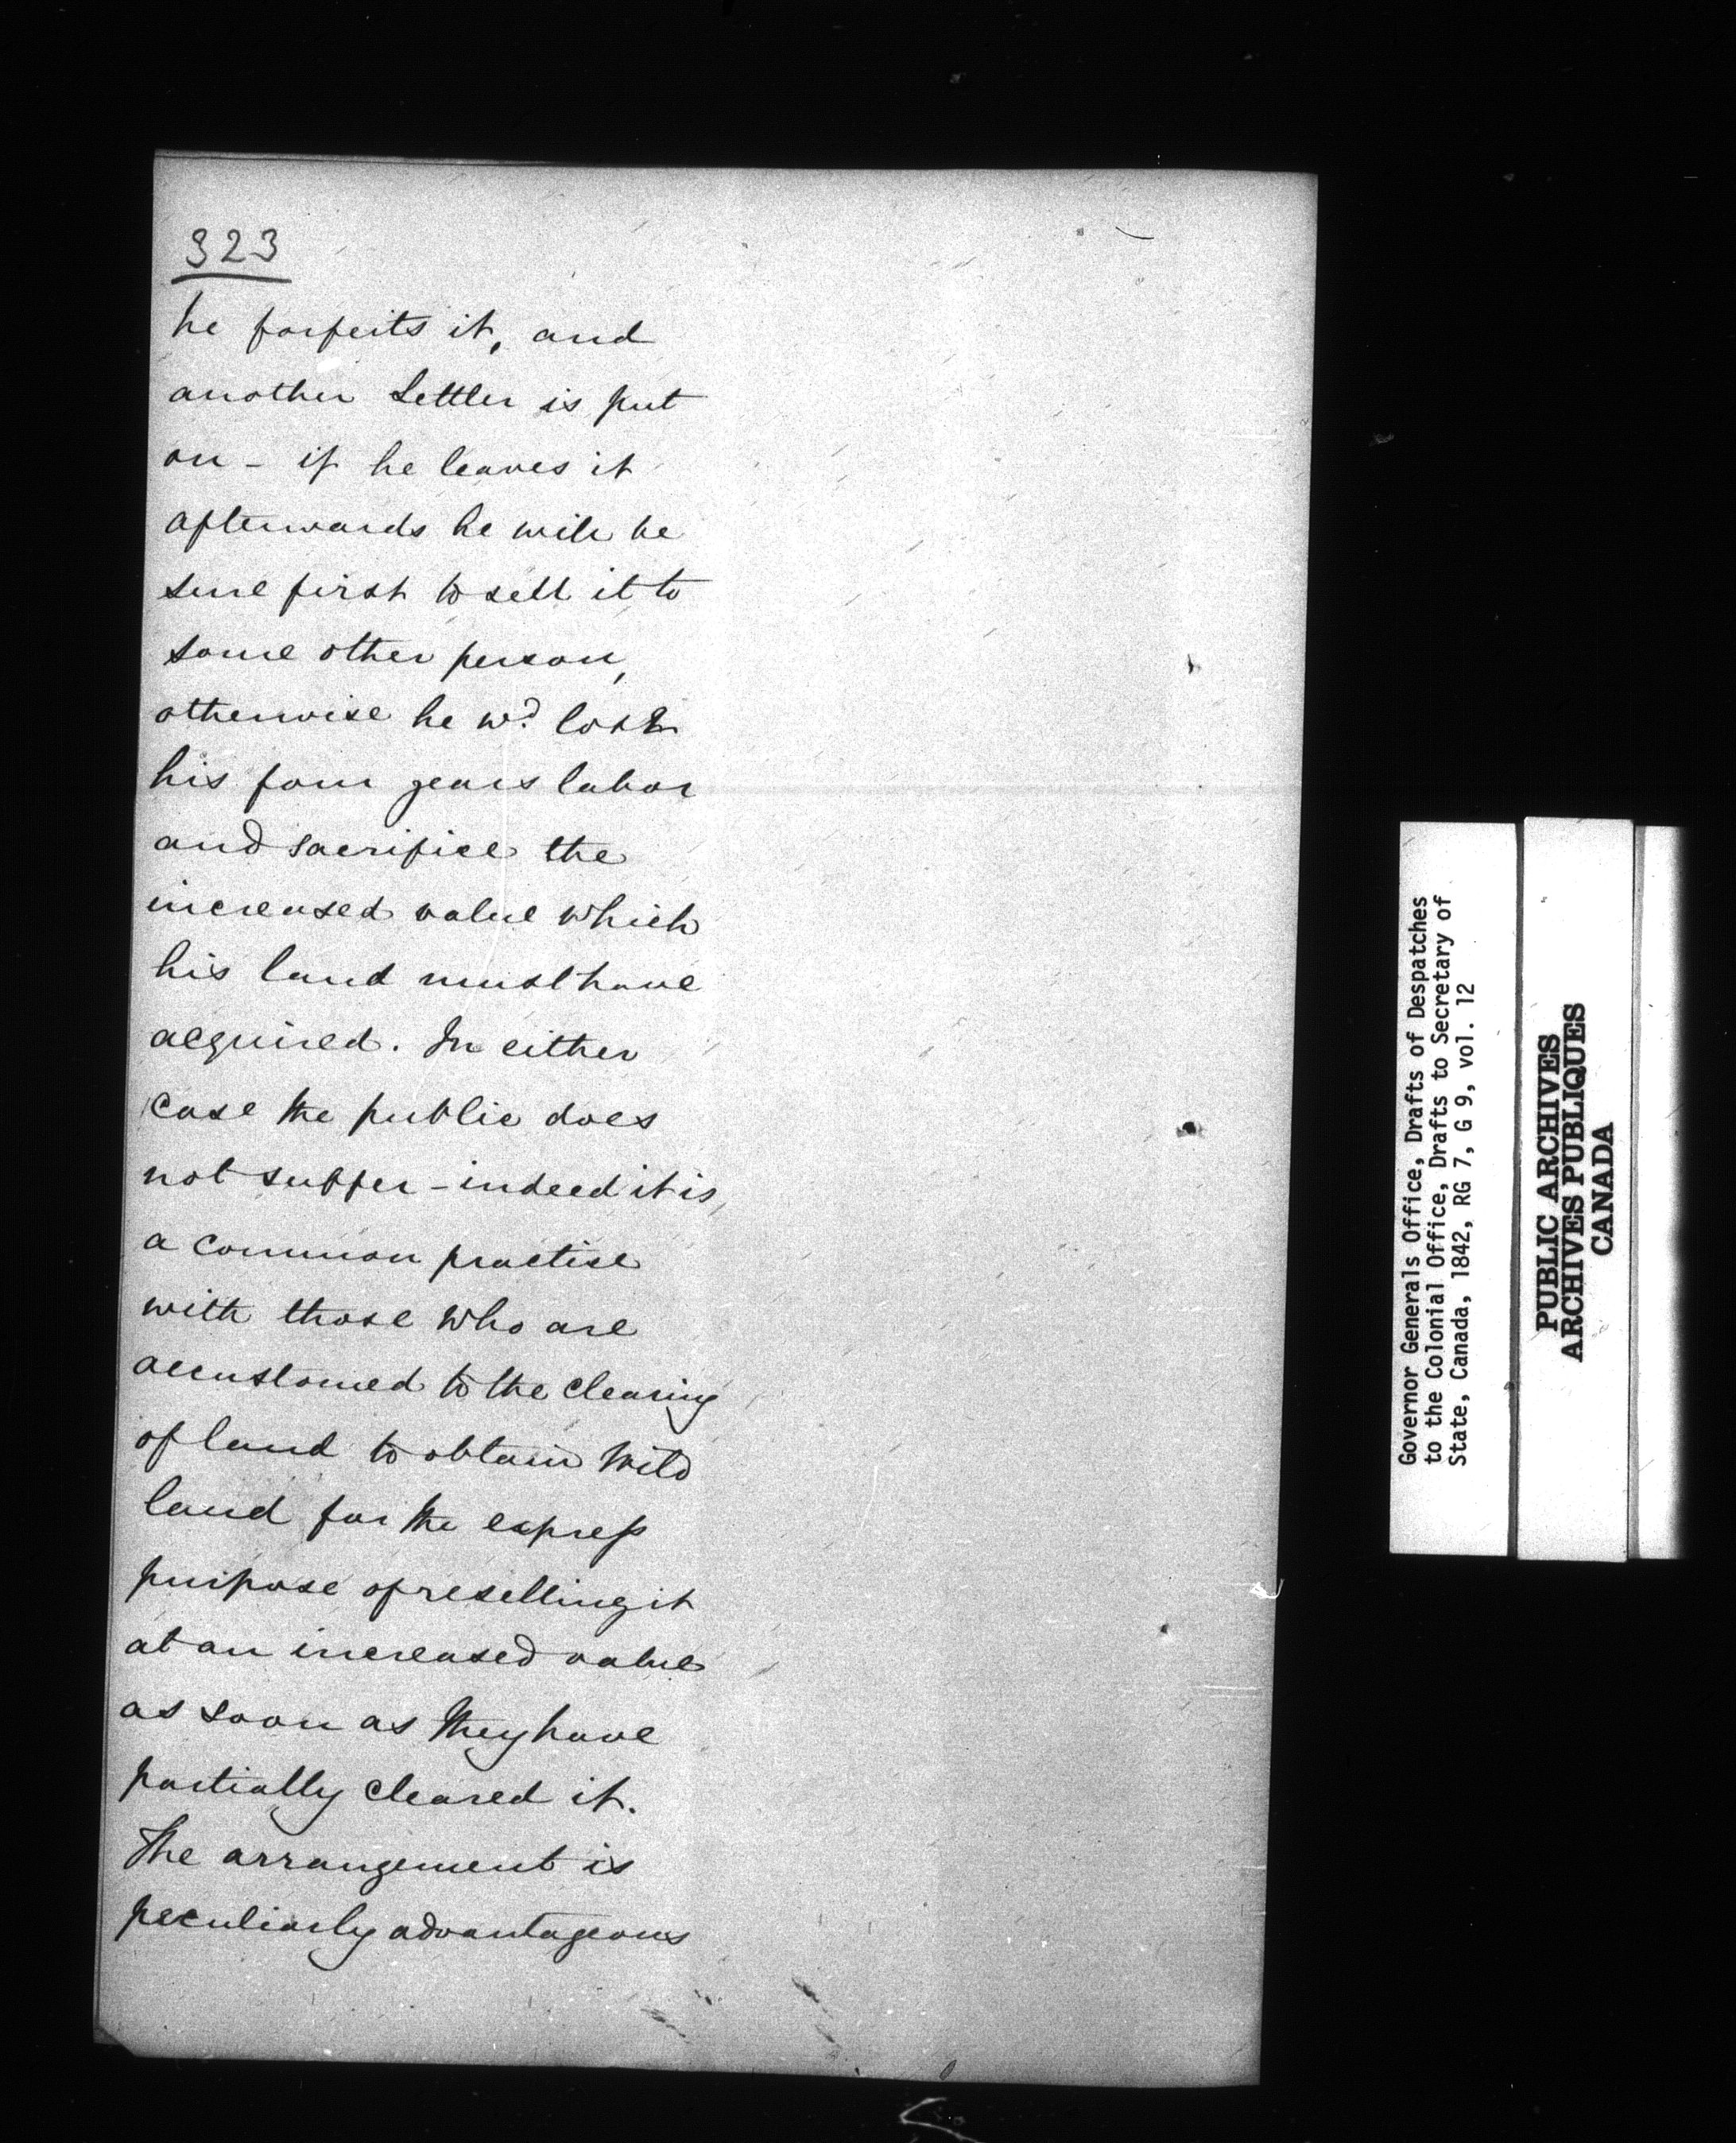 323
he forfeits it, and
another Settler is put
on - if he leaves it
afterwards he will be
sure first to sell it to
some other person,
otherwise he wd. lose
his four years labor
and sacrifice the
increased value which
his land must have
acquired. In either
case the public does
not suffer - indeed it is
a common practise
with those who are
accustomed to the clearing
of land to obtain wild
land for the express
purpose of reselling it
at an increased value
as soon as they have
partially cleared it.
The arrangement is
peculiarly advantageous
Governor Generals Office, Drafts of Despatches
to the Colonial Office, Drafts to Secretary of
State, Canada, 1842, RG 7, G 9, vol. 12
PUBLIC ARCHIVES
ARCHIVES PUBLIQUES
CANADA